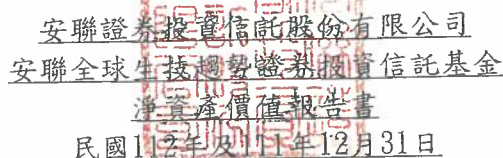 安聯證券投資信託股份有限公司
安聯全球生技趨勢證券投資信託基金
淨資產價值報告書
民國112年及111年12月31日